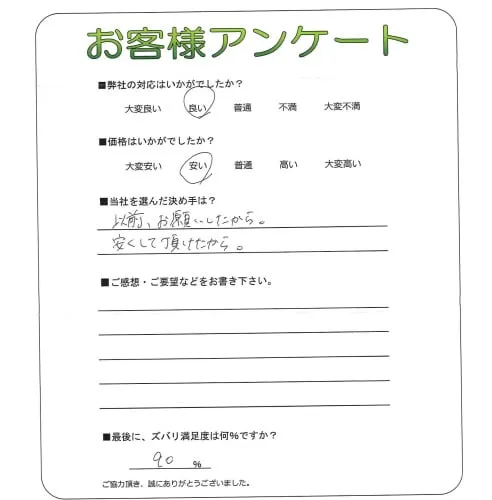 お客様アンケート
■弊社の対応はいかがでしたか？
大変良い 良い 普通 不満 大変不満
■価格はいかがでしたか？
大変安い 安い 普通 高い 大変高い
■当社を選んだ決め手は？
以前、お願いしたから。
安くして頂けたから。
■ご感想・ご要望などをお書き下さい。
■最後に、ズバリ満足度は何%ですか？
90 %
ご協力頂き、誠にありがとうございました。